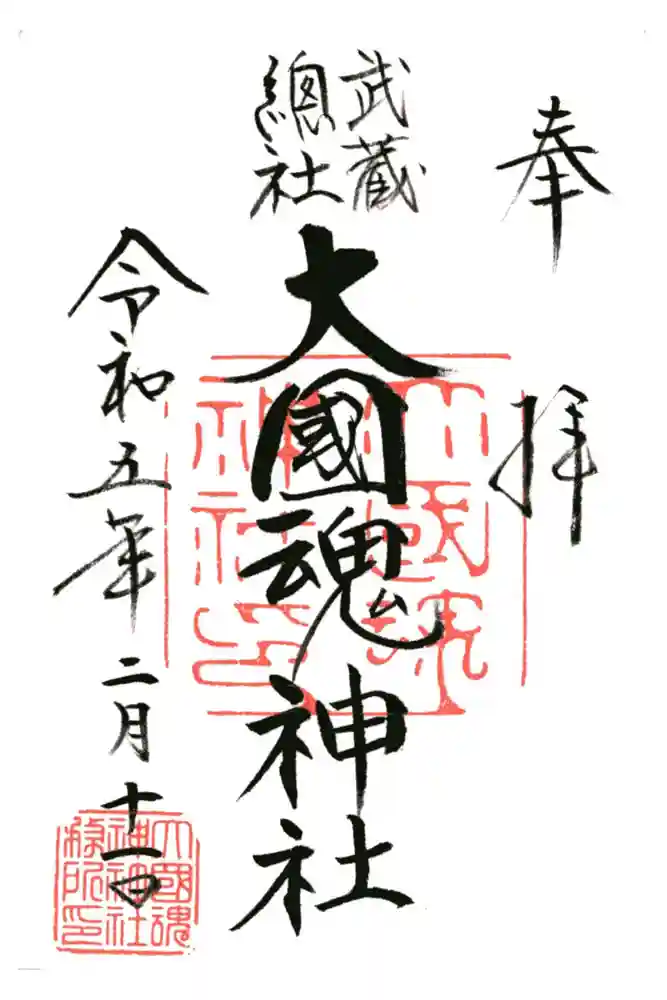 奉拝
武蔵
總社
大國魂神社
令和五年二月十一日
大國魂
神社印
大國魂
神社
務所印